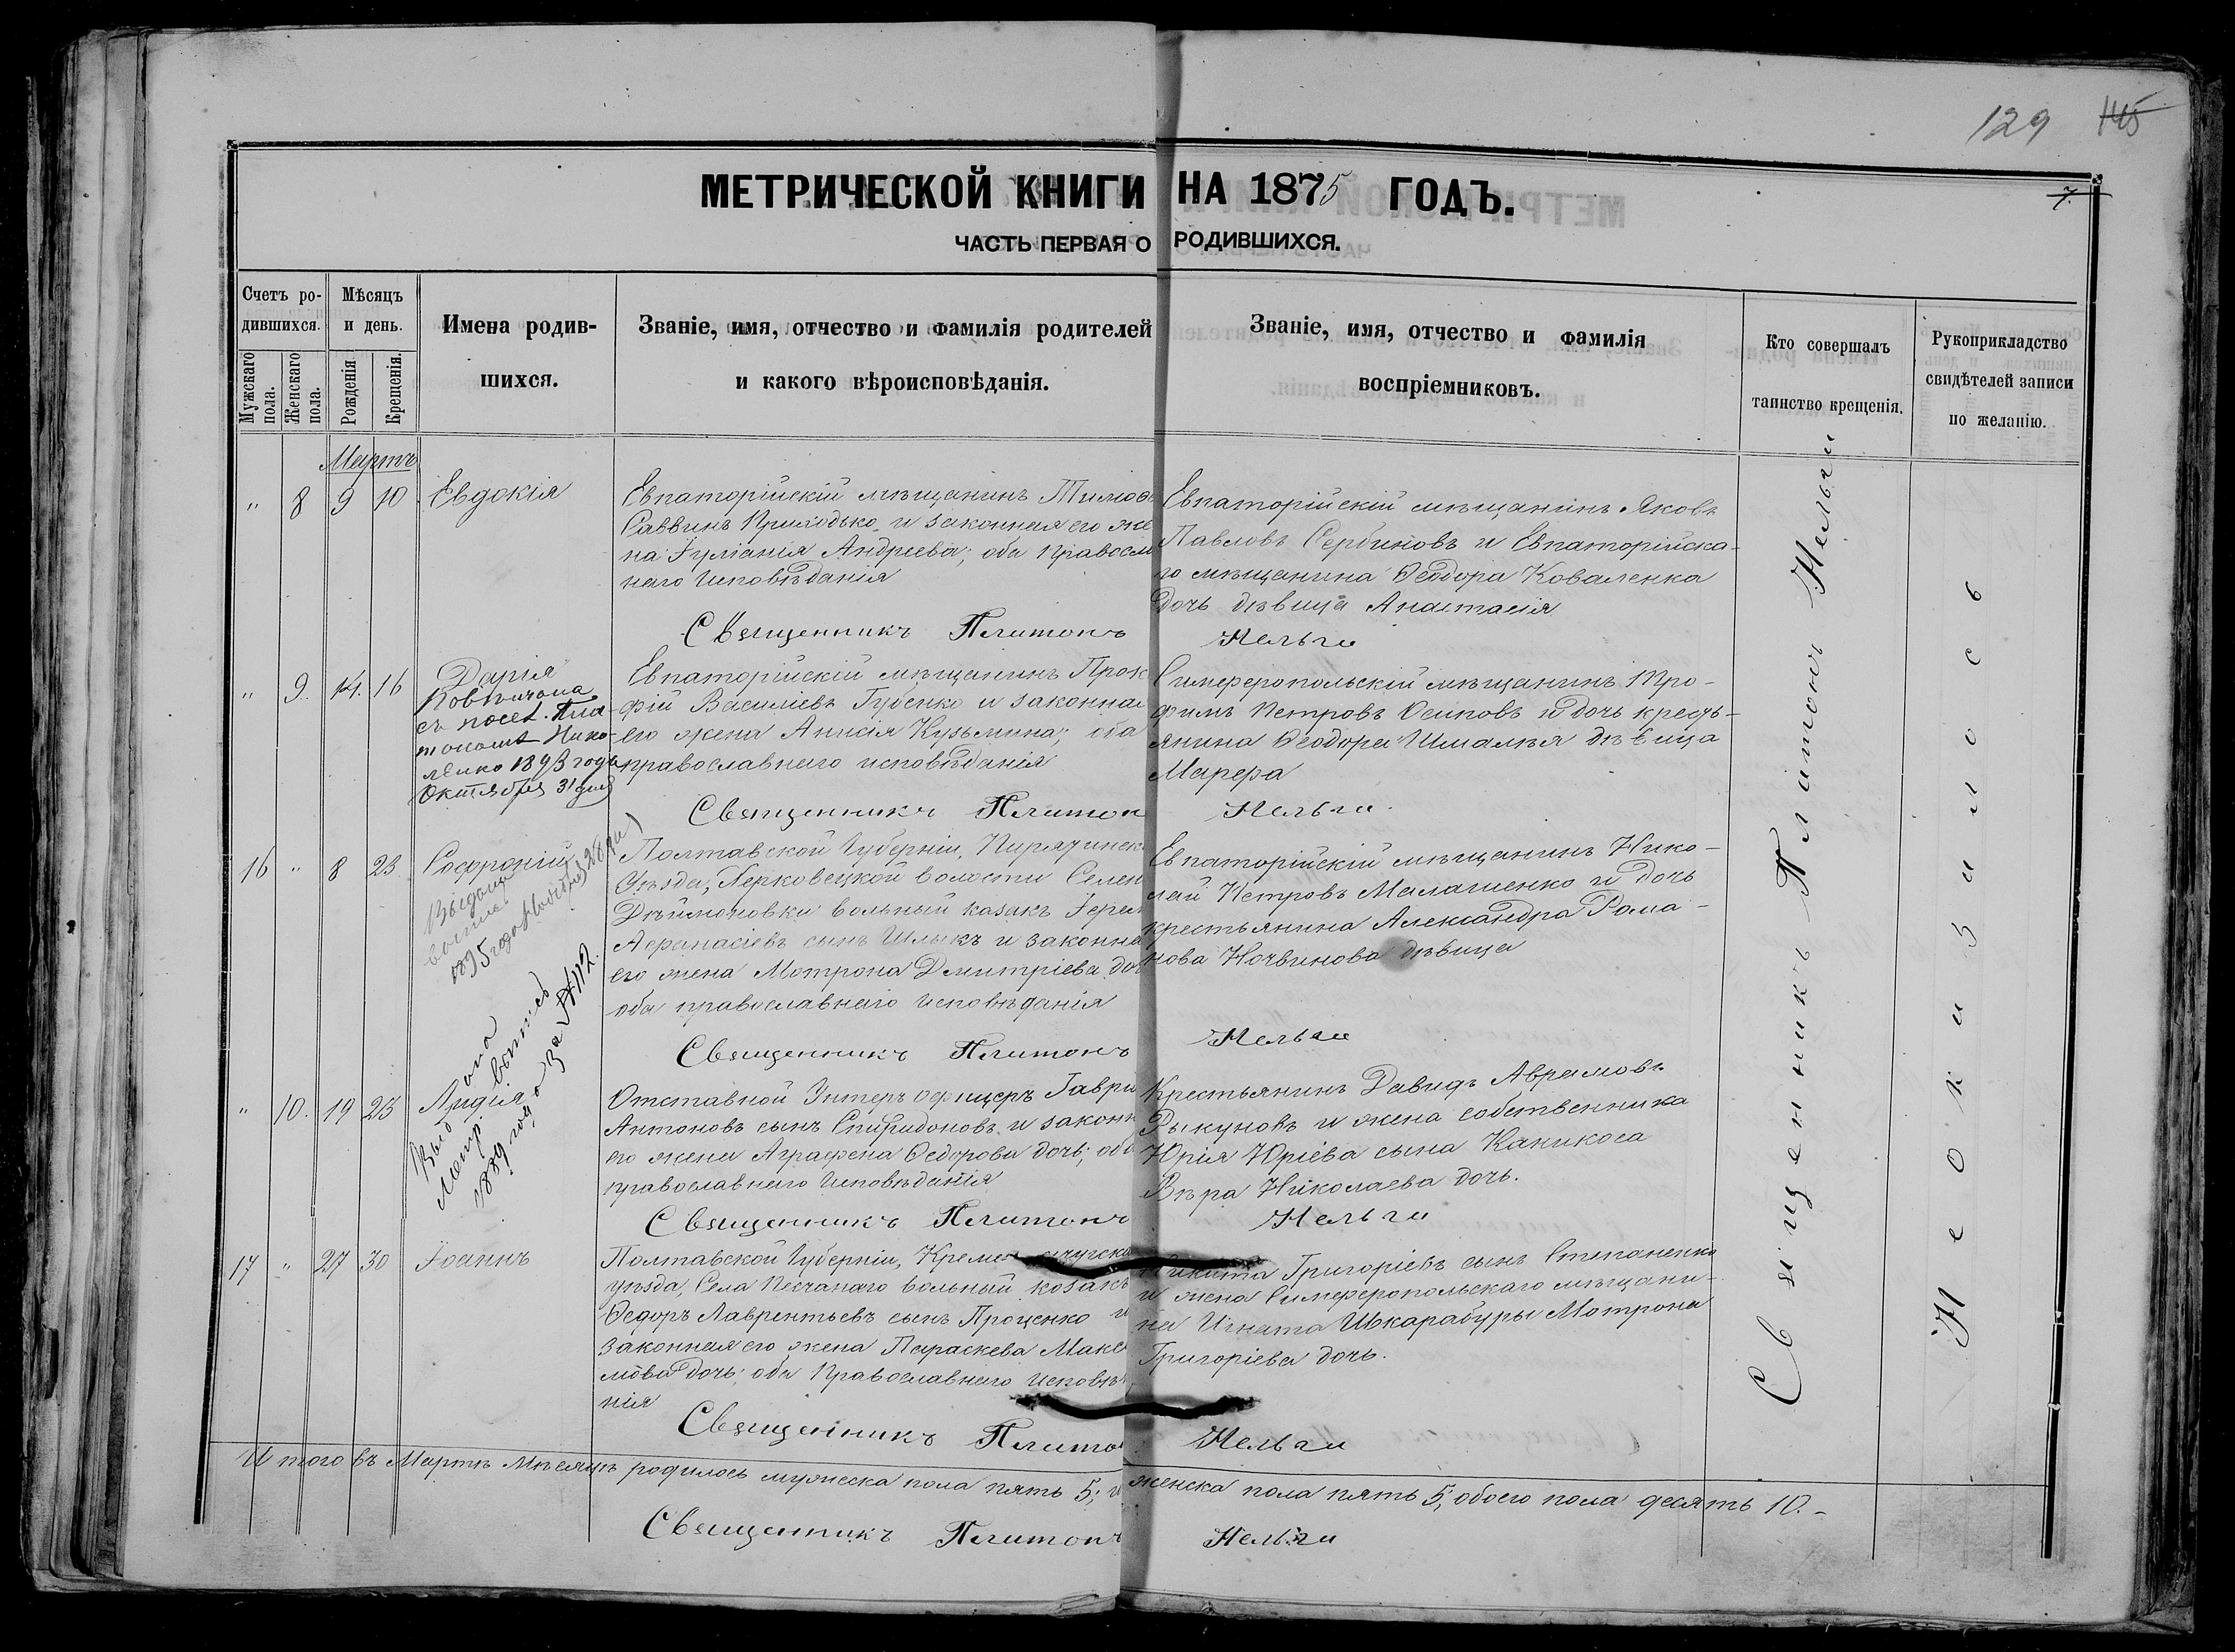 129 145
МЕТРИЧЕСКОЙ КНИГИ НА 1875 ГОДЪ.
7.
ЧАСТЬ ПЕРВАЯ О РОДИВШИХСЯ.
Счетъ ро-
дившихся.
Мужскаго пола.
Женскаго пола.
Мѣсяцъ
и день.
Рожденія
Крещенія.
Имена родив-
шихся.
Званіе, имя, отчество и фамилія родителей
и какого вѣроисповѣданія.
Званіе, имя, отчество и фамилія
воспріемниковъ.
Кто совершалъ
таинство крещенія.
Рукоприкладство
свидѣтелей записи
по желанію.
Мартъ
" 8 9 10 Евдокія
Евпаторійскій мѣщанинъ Тимоѳ
Саввинъ Приходько, и законная его же
на Іуліанія Андреева; оба православ
наго исповѣданія
Евпаторійскій мѣщанинъ Яковъ
Павловъ Сербиновъ и Евпаторійска-
го мѣщанина Ѳеодора Коваленка
дочь дѣвица Анастасія
Священникъ Платонъ Нельги
" 9. 14. 16 Дарія
Повѣнчана
съ посел. Пла-
тономъ Нико-
ленко 1893 года
Октября 31 дня
Евпаторійскій мѣщанинъ Прок
фій Василіевъ Губенко и законная
его жена Анисія Кузьмина; оба
православнаго исповѣданія
Симферопольскій мѣщанинъ Тро-
фимъ Петровъ Осиповъ и дочь кресть-
янина Ѳеодора Шмалья дѣвица
Марфа
Священникъ Платон Нельги.
16 " 8 23 Софроній
Выдана
выпись
1895 года Ноября 28 дня
Полтавской Губерніи, Пирятинск
Уѣзда, Лерковецкой волости Селен
Дѣймоновки вольный казакъ Іерем
Аѳанасіевъ сынъ Шлыкъ и законна
его жена Мотрона Дмитріева доч
оба православнаго исповѣданія
Евпаторійскій мѣщанинъ Нико-
лай Петровъ Малашенко и дочь
крестьянина Александра Рома-
нова Ночвинова дѣвица
Священникъ Платонъ Нельги
" 10. 19 23 Лидія
Выдана
метр выпись
1889 года за №112.
Отставной Унтеръ офицеръ Гаври
Антоновъ сынъ Спиридоновъ и законн
его жена Аграфена Ѳедорова дочь; оба
православнаго исповѣданія
Крестьянинъ Давидъ Аврамовъ
Рыкуновъ и жена собственника
Юрія Юріева сына Каникоса
Вѣра Николаева дочь.
Священникъ Платонъ Нельги
17 " 27 30 Іоаннъ
Полтавской Губерніи, Кременчугско
уѣзда, Села Песчанаго вольный козакъ
Ѳедоръ Лаврентьевъ сынъ Проценко и
законная его жена Параскева Макс
мова дочь; оба Православнаго исповѣ
нія
Никита Григоріевъ сынъ Степаненко
и жена Симферопольскаго мѣщани-
на Игната Шкарабуры Мотрона
Григоріева дочь.
Священникъ Платон Нельги
Итого въ Мартѣ Мѣсяцѣ родилось мужеска пола пять 5; и женска пола пять 5; обоего пола десять 10. -
Священникъ Платонъ Нельги
Священникъ Платонъ Нельги
Неоказилось